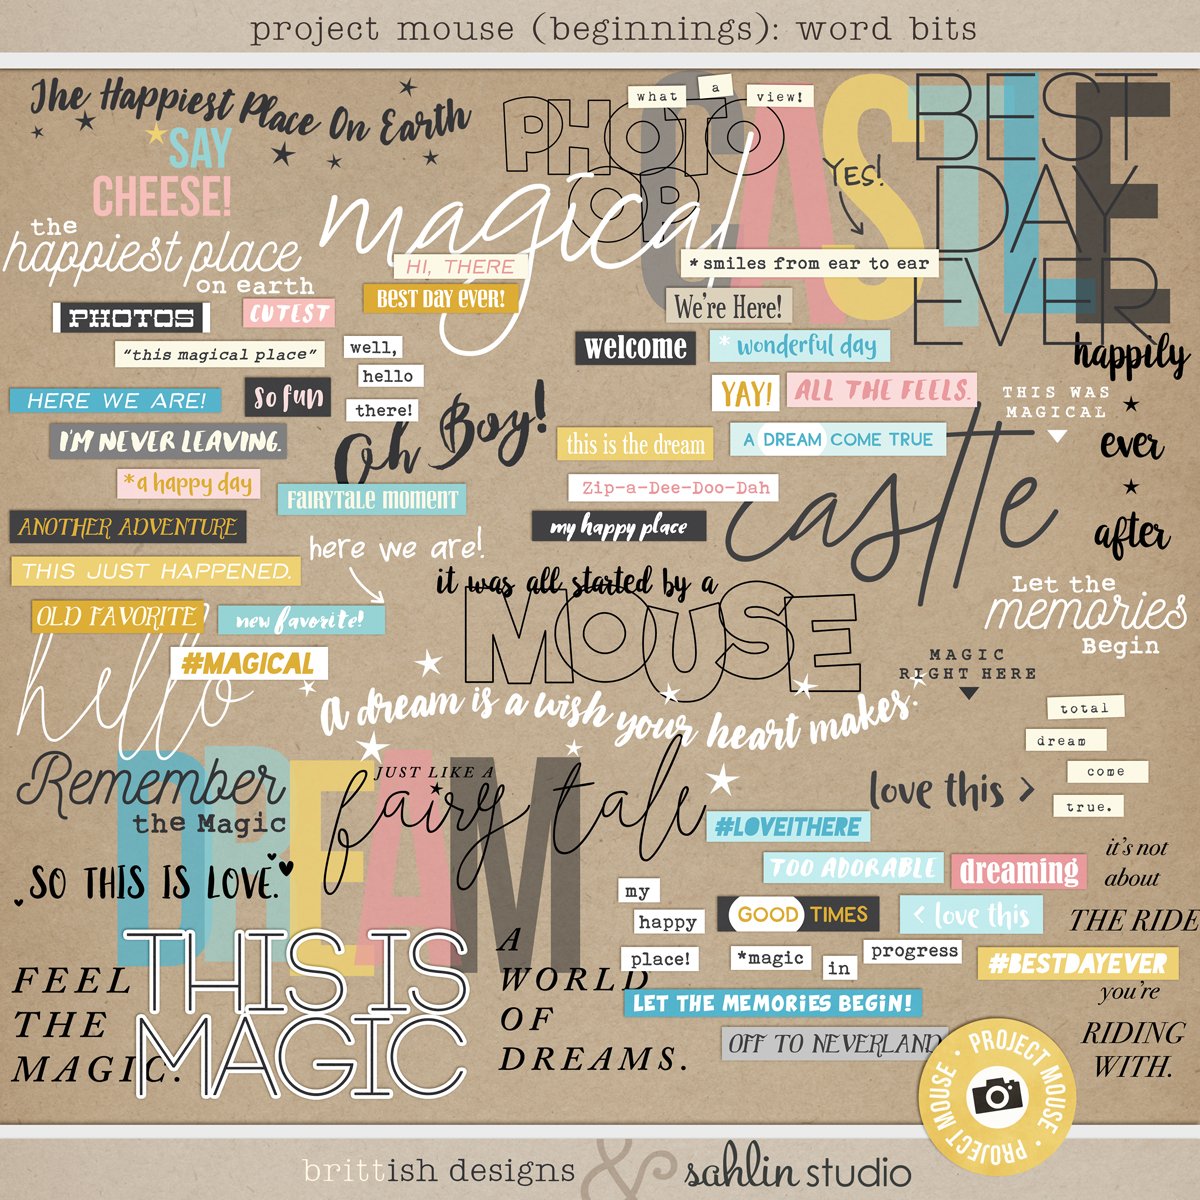 project mouse (beginnings): word bits
The Happiest Place On Earth
SAY
CHEESE!
the
happiest place
on earth
PHOTO
OP
what a view!
CASTLE
YES!
BEST
DAY
EVER
magical
HI, THERE
BEST DAY EVER!
* smiles from ear to ear
We're Here!
PHOTOS
CUTEST
"this magical place"
well,
hello
there!
welcome
* wonderful day
happily
ever
after
HERE WE ARE!
so fun
YAY!
ALL THE FEELS.
THIS WAS
MAGICAL
I'M NEVER LEAVING.
Oh Boy!
this is the dream
A DREAM COME TRUE
*a happy day
FAIRYTALE MOMENT
Zip-a-Dee-Doo-Dah
castle
ANOTHER ADVENTURE
my happy place
here we are!
THIS JUST HAPPENED.
it was all started by a
MOUSE
Let the
memories
Begin
OLD FAVORITE
new favorite!
hello
#MAGICAL
MAGIC
RIGHT HERE
A dream is a wish your heart makes.
total
dream
come
true.
DREAM
Remember
the Magic
JUST LIKE A
fairy tale
love this >
#LOVEITHERE
it's not
about
THE RIDE
you're
RIDING
WITH.
TOO ADORABLE
dreaming
SO THIS IS LOVE.
my
happy
place!
GOOD TIMES
< love this
*magic
in
progress
#BESTDAYEVER
THIS IS
MAGIC
FEEL
THE
MAGIC.
A
WORLD
OF
DREAMS.
LET THE MEMORIES BEGIN!
OFF TO NEVERLAND
PROJECT MOUSE • PROJECT MOUSE • PROJECT MOUSE •
brittish designs & sahlin studio